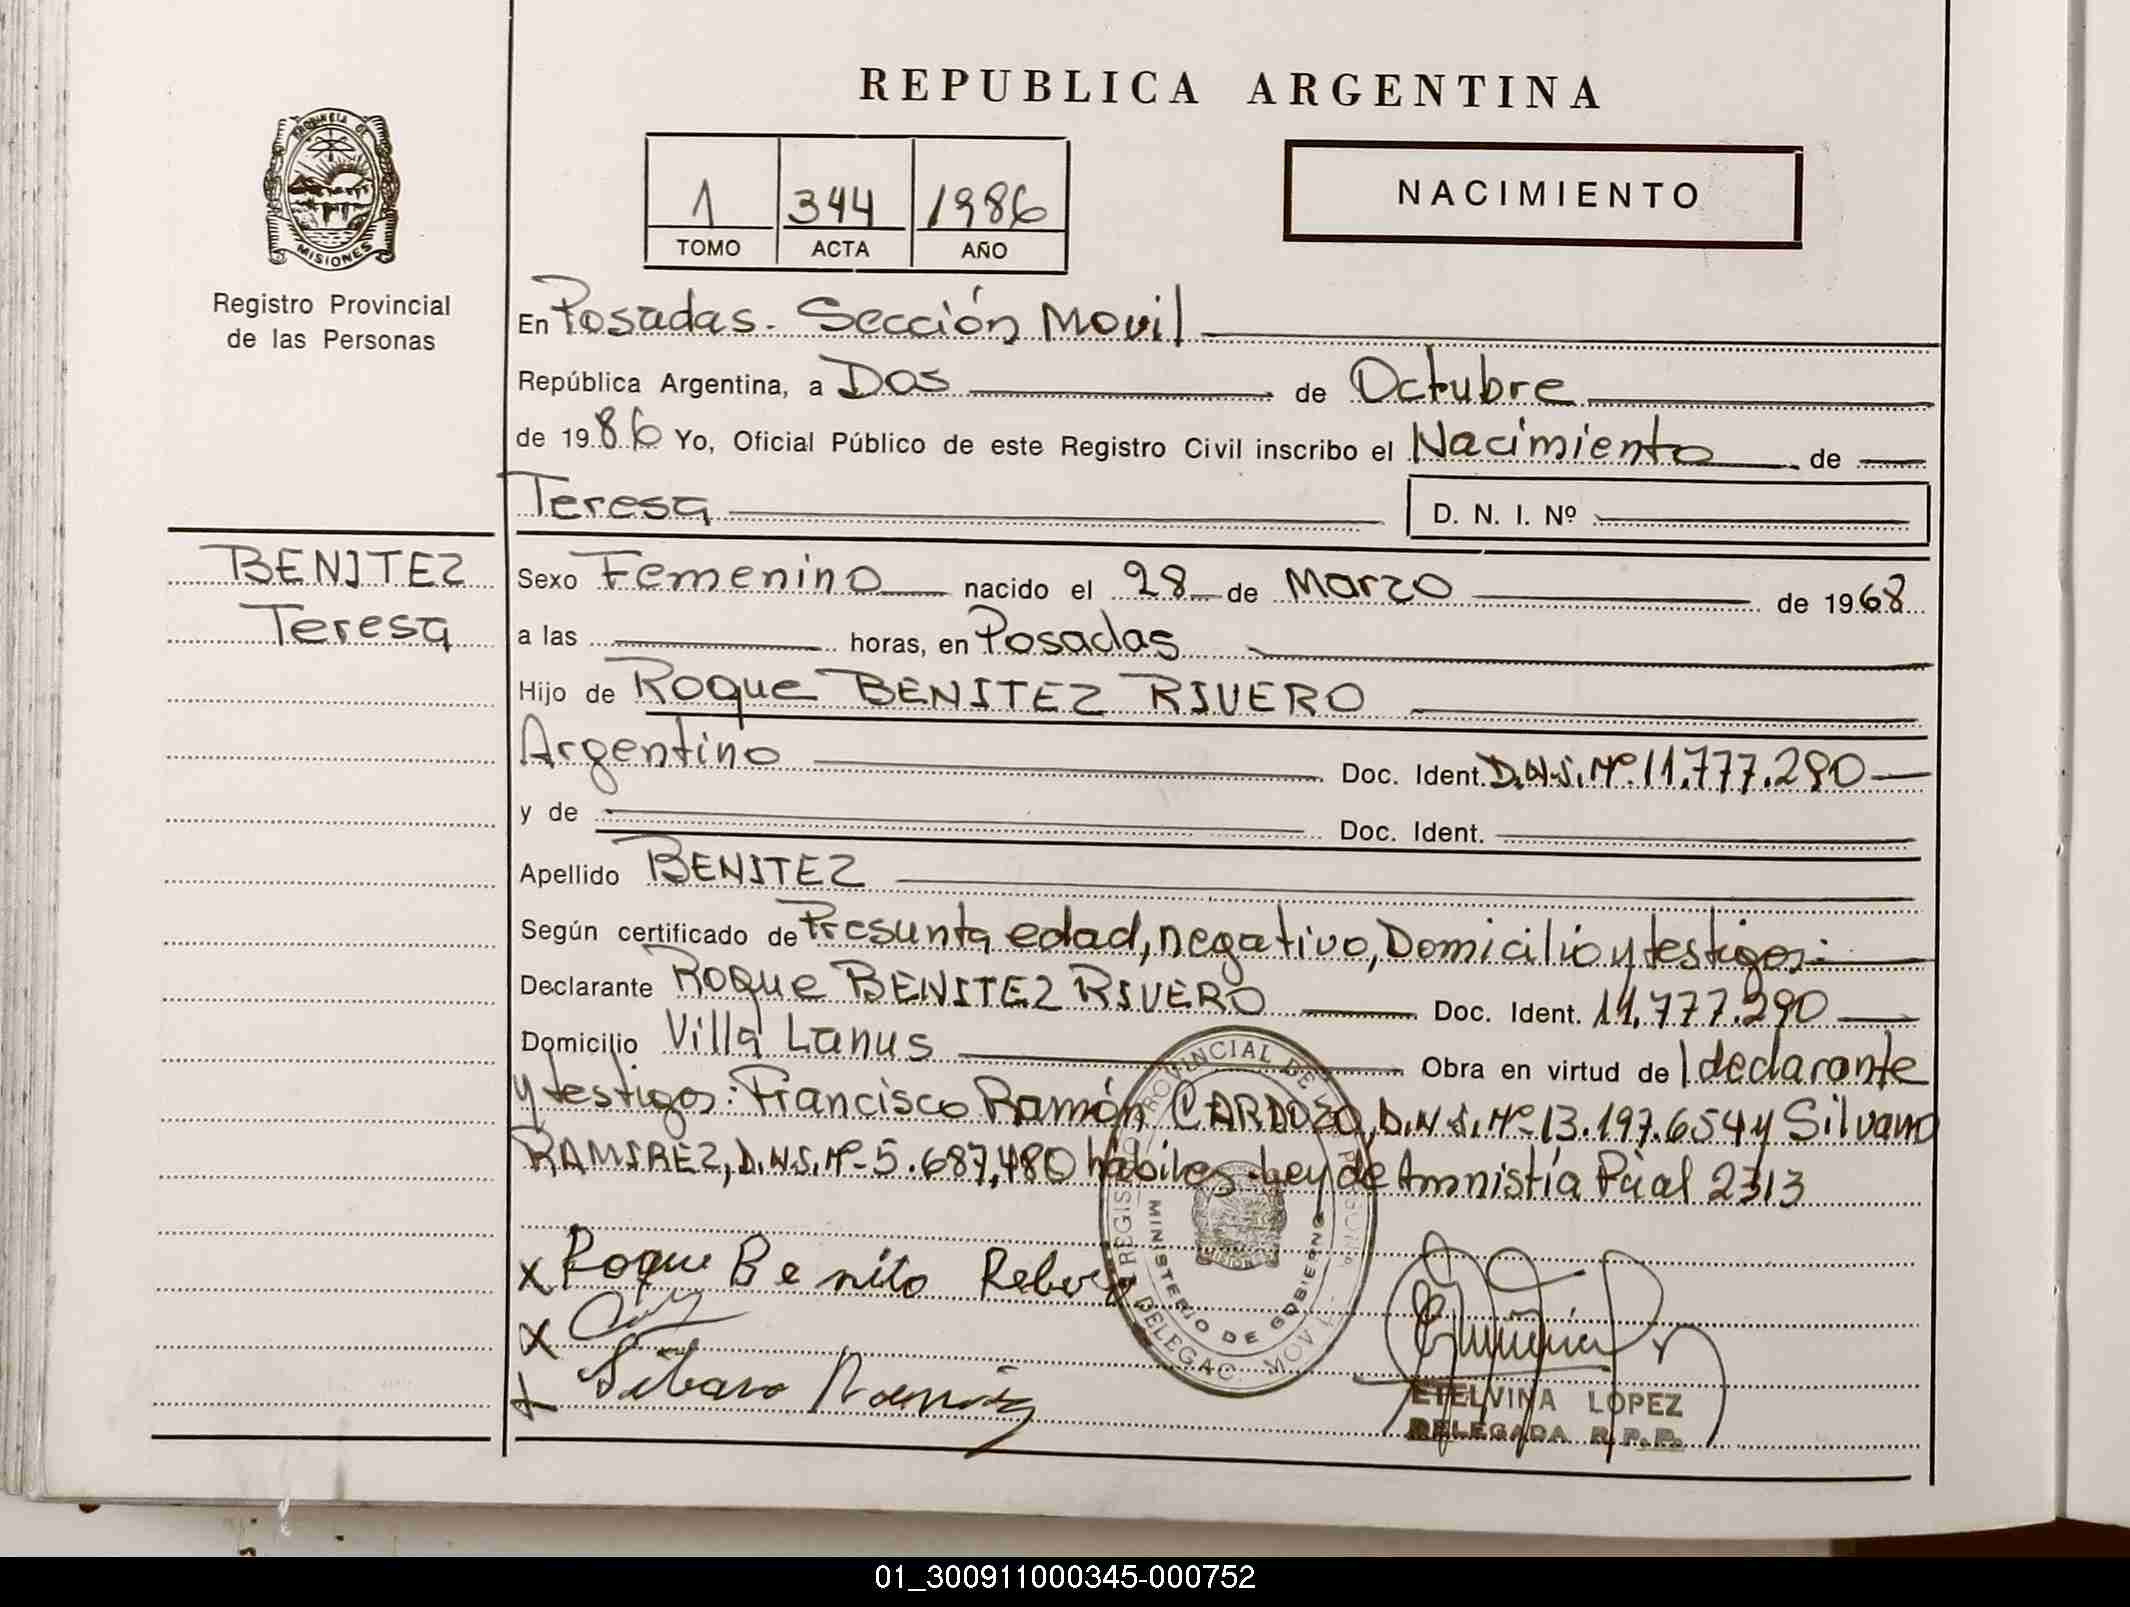 REPUBLICA ARGENTINA
PROVINCIA DE
MISIONES
Registro Provincial
de las Personas
1 344 1986
TOMO ACTA AÑO
NACIMIENTO
En Posadas. Sección Movil
República Argentina, a Dos de Octubre
de 1986 Yo, Oficial Público de este Registro Civil inscribo el Nacimiento de
Teresa D. N. I. Nº
BENITEZ
Teresa
Sexo Femenino nacido el 28 de Marzo de 1968
a las horas, en Posadas
Hijo de Roque BENITEZ RIVERO
Argentino Doc. Ident. D.N.I. Nº 11.777.290
y de Doc. Ident.
Apellido BENITEZ
Según certificado de Presunta edad, negativo, Domicilio y testigos:
Declarante Roque BENITEZ RIVERO Doc. Ident. 11.777.290
Domicilio Villa Lanus Obra en virtud de l declarante
y testigos: Francisco Ramón CARDOZO, D.N.I. Nº 13.197.654 y Silvano
RAMIREZ, D.N.I. Nº 5.687.480 hábiles. Ley de Amnistía Pcial 2313
x Roque Benito Rebero
x
x Silbano Ramirez
REGISTRO PROVINCIAL DE LAS PERSONAS
MINISTERIO DE GOBIERNO
DELEGAC. MOVIL
ETELVINA LOPEZ
DELEGADA R. P. P.
01_300911000345-000752